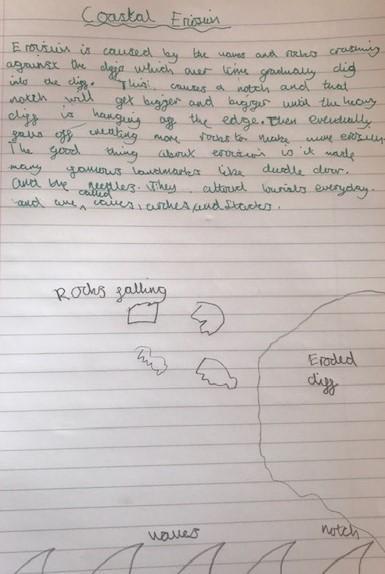 Coastal Erosion
Erosion is caused by the waves and rocks crashing
against the cliffs which over time gradually dig
into the cliff. This causes a notch and that
notch will get bigger and bigger until the heavy
cliff is hanging off the edge. Then eventually
falls off creating more rocks to make more erosion.
The good thing about erosion is it made
many famous landmarks like durdle door.
And the needles. They attract tourists everyday.
and are called caves, arches, and stacks.
Rocks falling
Eroded
cliff
waves
notch